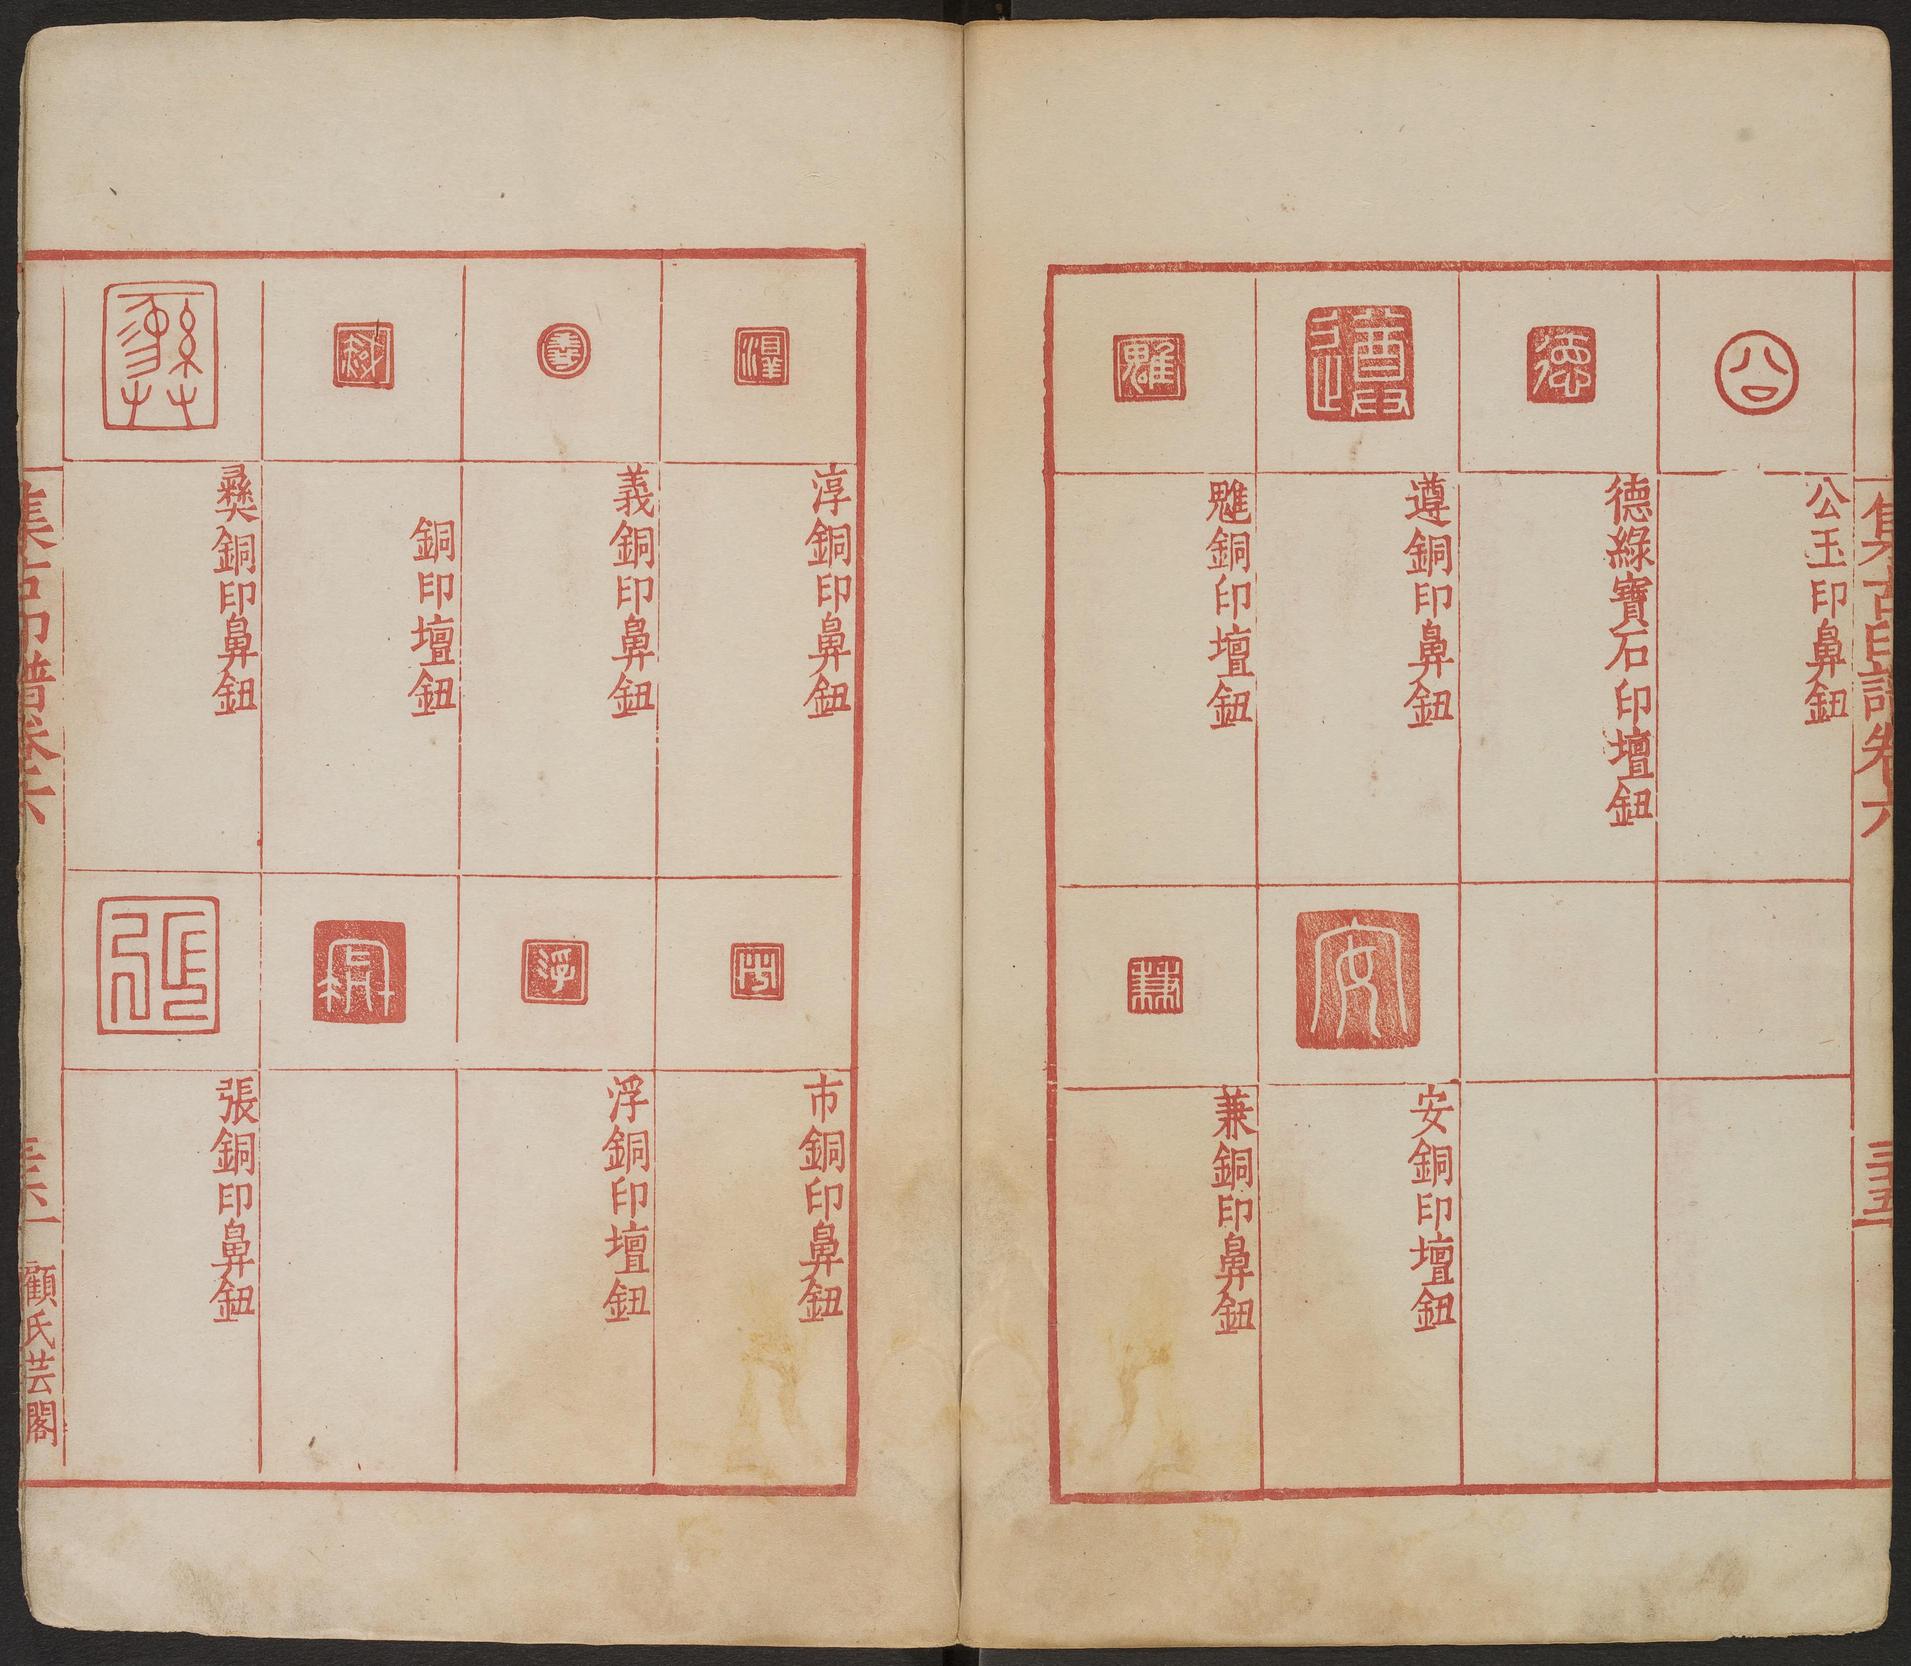 集古印譜卷六
三十五
公
公玉印鼻鈕
德
德綠寶石印壇鈕
遵
遵銅印鼻鈕
魋
魋銅印壇鈕
安
安銅印壇鈕
兼
兼銅印鼻鈕
淳
淳銅印鼻鈕
義
義銅印鼻鈕
銅印壇鈕
彝
彝銅印鼻鈕
市
市銅印鼻鈕
浮
浮銅印壇鈕
張
張銅印鼻鈕
集古印譜卷六
三十六
顧氏芸閣